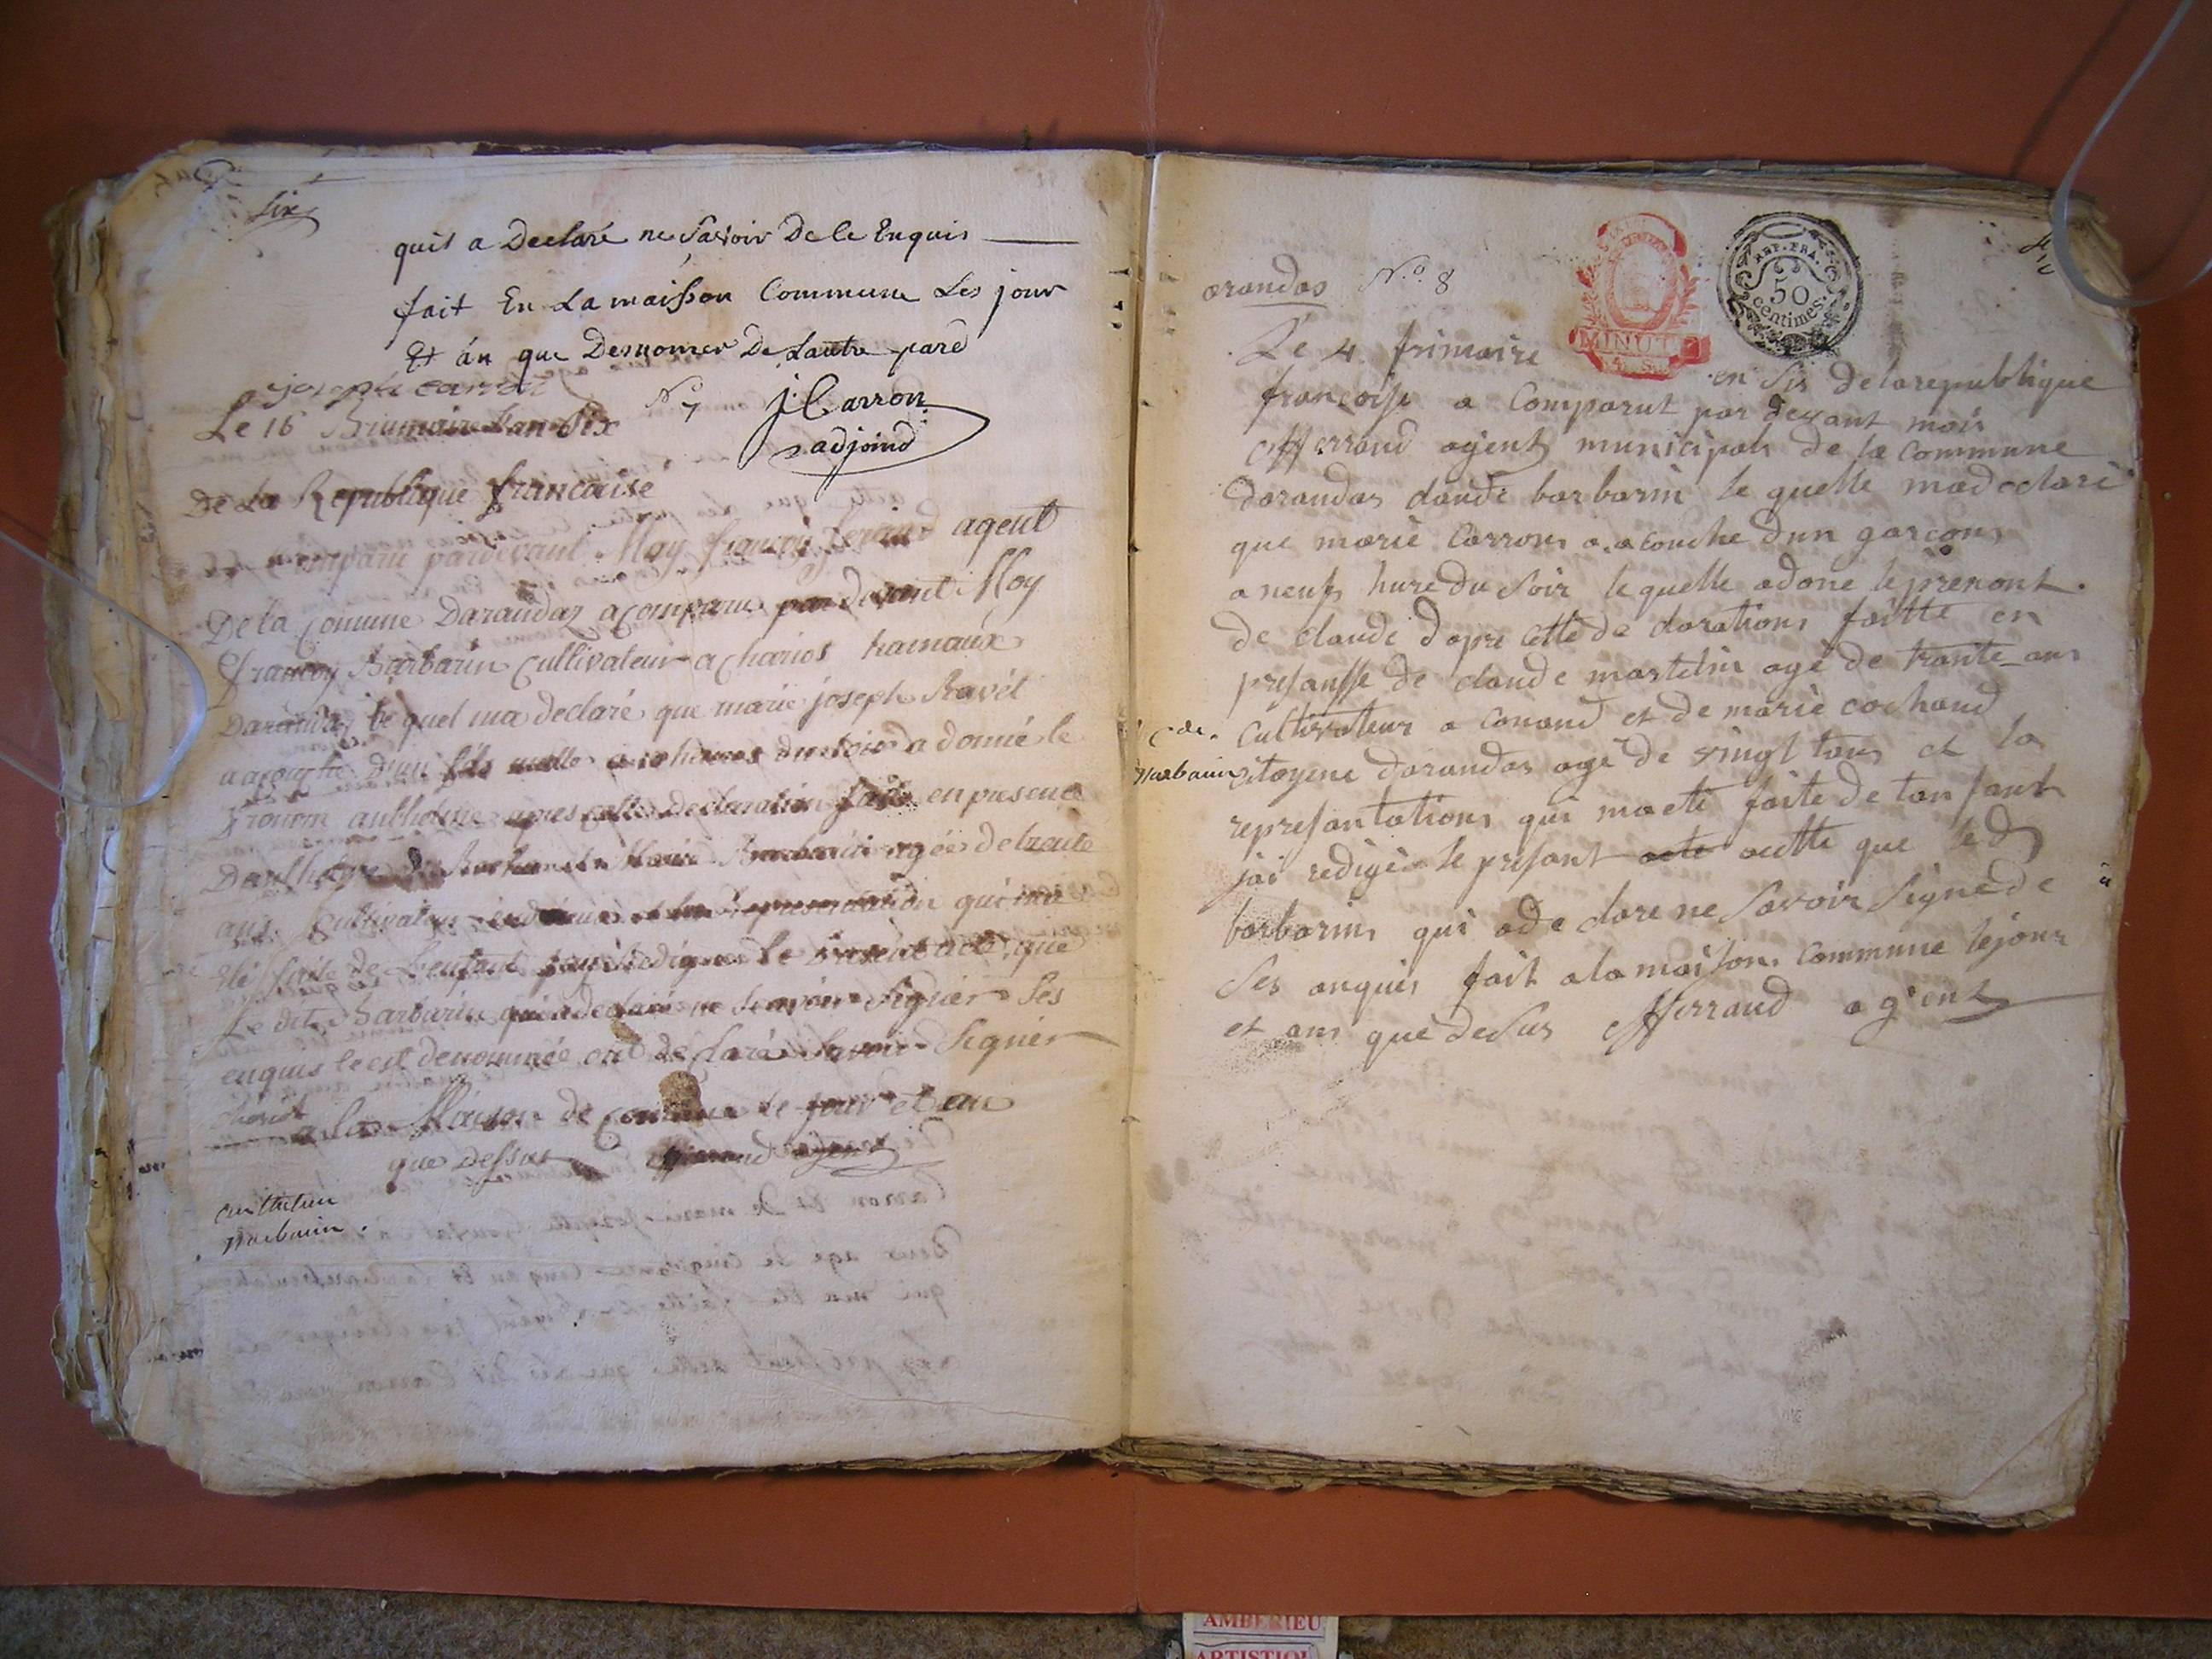 six
quis a Declaré ne Savoir De le Enquis
fait En La maison Commune Les jour
Et án que Denomer De Lautre pard
joseph carron
J. Carron
adjoind
N.o 7
Le 16 Brumaire Lan Six
De La Republique francaise
comparu pardevant Moy françois feraud agent
De la Comune Darandaz a comparu par devant Moy
francoy Barbarin Cultivateur a charios hamaux
Darandaz le quel ma declaré que marie joseph Ravét
a acouché dun fils malle a 10 heures du soir a donné le
apres cette declaration faite en presence
Marie agée de trente
ans Cultivateur et la Representation qui ma
été faite de Lenfant jay Redigé Le present acte que
Le dit Barbarin qui a declaré ne Scavoir Signer Ses
enquis le est denommée ont déclaré Savoir Signer
a la Maison de Commune le jour et an
que Dessus fferraud agent
anthelme
Barbarin.
arandas N.o 8
REP. FRA.
50
centimes.
MINUTE
Le 4 frimaire en Sis De la republique
françoise a Comparut par devant mois
fferraud agent municipals de la Commune
darandas claude barbarin le quelle mad eclaré
que marie Carrons a acouche dun garcons
a neufs hure du Soir le quelle adone le prenont.
de claude dapre cette de clarations faitte en
presansse de claude martelin agé de trante ans
Cultivateur a Conand et de marie cochand
Cde.
Barbarin
sitoyene darandas agé de vingt tans et la
represantations qui ma eté faite de lanfant
jai redigé le presant acte actte que le d
barbarins qui a de clare ne Savoir Signé de
Ses anquis fait a la maisons Commune le jour
et ans que deSus fferraud agent
AMBERIEU